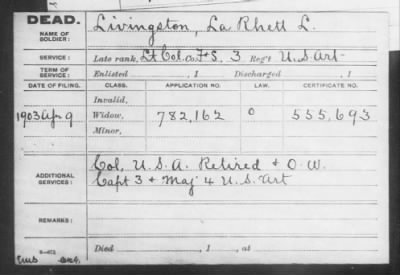 DEAD.
NAME OF SOLDIER: Livingston, La Rhett L.
SERVICE: Late rank, Lt Col. Co. F+S, 3 Reg't U.S. Art-
TERM OF SERVICE: Enlisted , 1 Discharged , 1
DATE OF FILING. CLASS. APPLICATION NO. LAW. CERTIFICATE NO.
Invalid,
1903 Apr 9 Widow, 782,162 O 555,693
Minor,
ADDITIONAL SERVICES: Col, U.S.A. Retired + O.W.
Capt 3 + Maj 4 U.S. Art
REMARKS:
Died , 1 , at